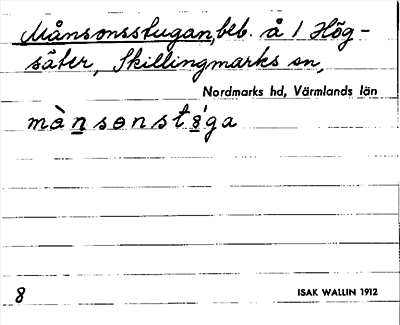 Månsonsstugan, beb. å 1 Hög-
säter, Skillingmarks sn,
Nordmarks hd, Värmlands län
mànsonstśga
8
ISAK WALLIN 1912